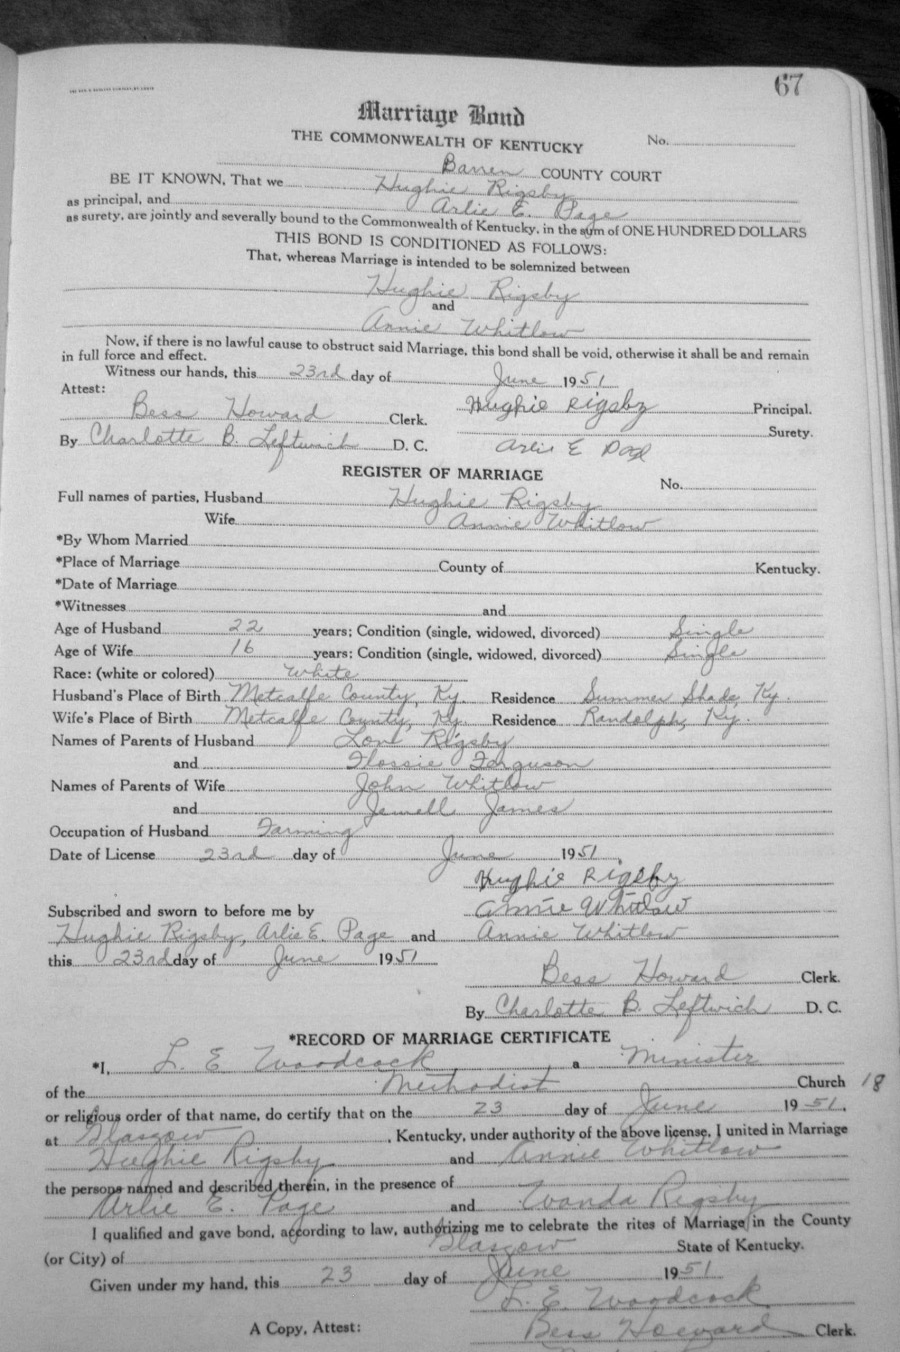 67
Marriage Bond
THE COMMONWEALTH OF KENTUCKY No.
Barren COUNTY COURT
BE IT KNOWN, That we Hughie Rigsby
as principal, and Arlie E. Page
as surety, are jointly and severally bound to the Commonwealth of Kentucky, in the sum of ONE HUNDRED DOLLARS
THIS BOND IS CONDITIONED AS FOLLOWS:
That, whereas Marriage is intended to be solemnized between
Hughie Rigsby
and
Annie Whitlow
Now, if there is no lawful cause to obstruct said Marriage, this bond shall be void, otherwise it shall be and remain
in full force and effect.
Witness our hands, this 23rd day of June 1951
Attest:
Hughie Rigsby Principal.
Bess Howard Clerk.
Surety.
By Charlotte B. Leftwich D. C. Arlie E Page
REGISTER OF MARRIAGE No.
Full names of parties, Husband Hughie Rigsby
Wife Annie Whitlow
*By Whom Married
*Place of Marriage County of Kentucky.
*Date of Marriage
*Witnesses and
Age of Husband 22 years; Condition (single, widowed, divorced) Single
Age of Wife 16 years; Condition (single, widowed, divorced) Single
Race: (white or colored) White
Husband's Place of Birth Metcalfe County, Ky. Residence Summer Shade, Ky.
Wife's Place of Birth Metcalfe County, Ky. Residence Randolph, Ky.
Names of Parents of Husband Lont Rigsby
and Flossie Ferguson
Names of Parents of Wife John Whitlow
and Jewell James
Occupation of Husband Farming
Date of License 23rd day of June 1951.
Hughie Rigsby
Subscribed and sworn to before me by Annie Whitlow
Hughie Rigsby, Arlie E. Page and Annie Whitlow
this 23rd day of June 1951
Bess Howard Clerk.
By Charlotte B. Leftwich D. C.
*RECORD OF MARRIAGE CERTIFICATE
*I, L. E. Woodcock a Minister
of the Methodist Church 18
or religious order of that name, do certify that on the 23 day of June 1951,
at Glasgow, Kentucky, under authority of the above license, I united in Marriage
Hughie Rigsby and Annie Whitlow
the persons named and described therein, in the presence of
Arlie E. Page and Wanda Rigsby
I qualified and gave bond, according to law, authorizing me to celebrate the rites of Marriage in the County
(or City) of Glasgow State of Kentucky.
Given under my hand, this 23 day of June 1951
L. E. Woodcock
A Copy, Attest: Bess Howard Clerk.